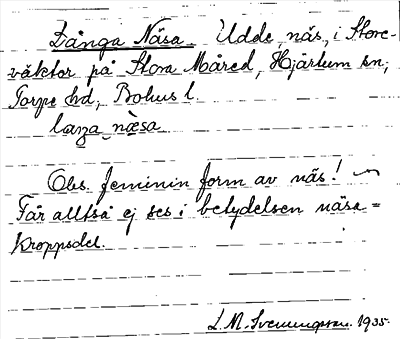 Långa Näsa. Udde, näs, i Store-
väktor på Stora Måred, Hjärtum sn,
Torpe hd, Bohus l.
laŋa næsa
Obs. feminin form av näs! ~
Får alltså ej ses i betydelsen näsa =
kroppsdel.
L. M. Svenungsson. 1935.